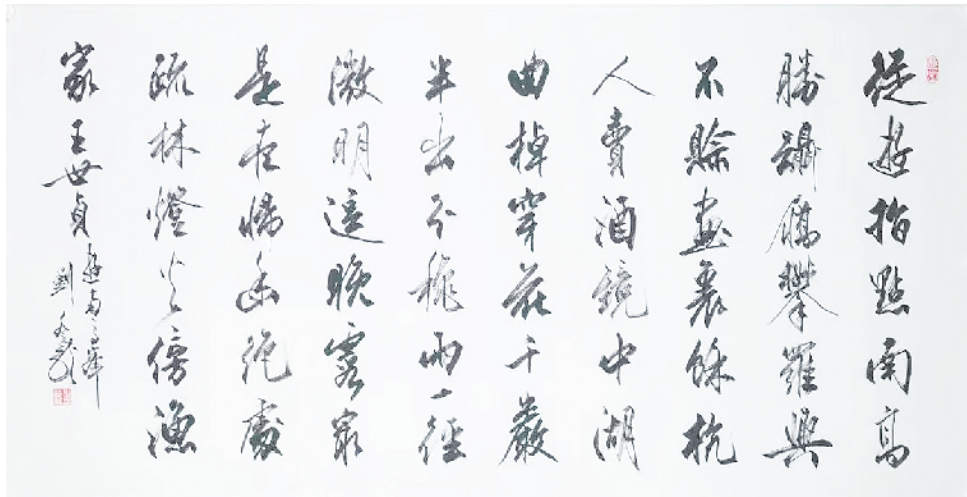 從遊指點南高
勝躡屩攀羅興
不賒畫裏餘杭
人賣酒鏡中湖
曲棹穿花千巖
半出分秋雨一徑
微明逗晚霞最
是夜歸幽絕處
疏林燈火傍漁
家 王世貞
遊南高峰
劉